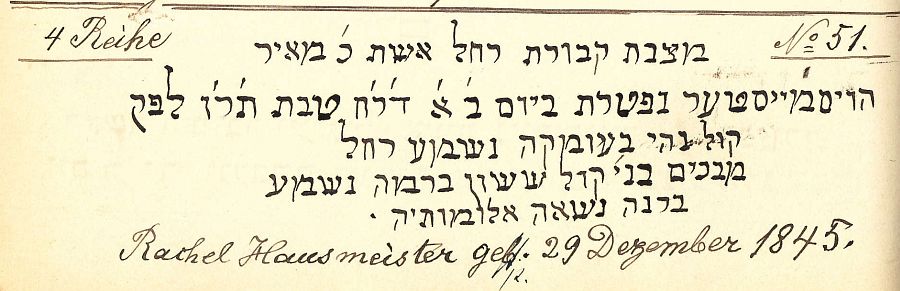 4 Reihe מצבת קבורת רחל אשת כ' מאיר No 51.
הויסמייסטער נפטרת ביום ב' א' ד'ר'ח' טבת ת'ר'ו' לפק
קול נהי בעומקה נשמע רחל
מבכים בני' קול ששון ברמה נשמע
ברנה נשאה אלומותיה .
Rachel Hausmeister gest. 29 Dezember 1845.